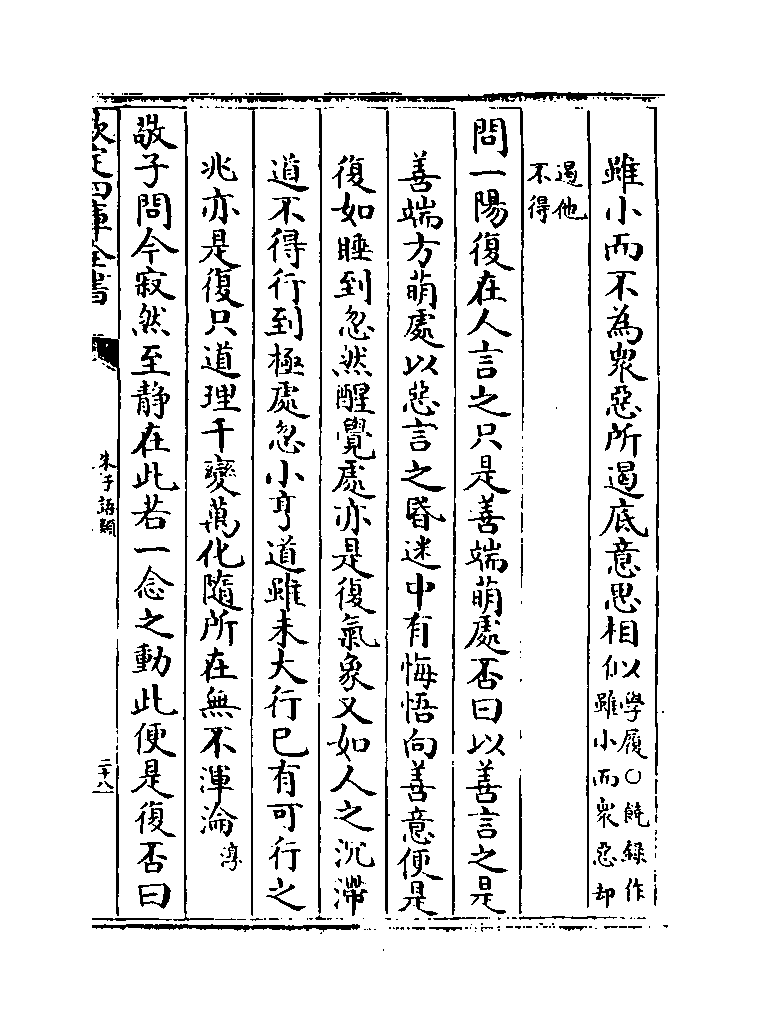 雖小而不為衆惡所遏底意思相似學履○饒録作雖小而衆惡却
遏他不得
問一陽復在人言之只是善端萌處否曰以善言之是
善端方萌處以惡言之昏迷中有悔悟向善意便是
復如睡到忽然醒覺處亦是復氣象又如人之沉滯
道不得行到極處忽小亨道雖未大行已有可行之
兆亦是復只道理千變萬化隨所在無不渾淪淳
敬子問今寂然至靜在此若一念之動此便是復否曰
欽定四庫全書
朱子語類
二十八